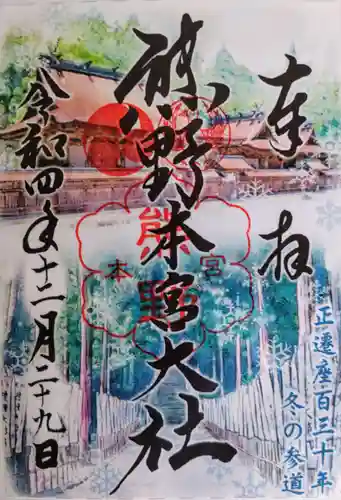 奉拝
熊野本宮大社
令和四年十二月二十九日
熊野
本宮
正遷座百三十年
冬の参道